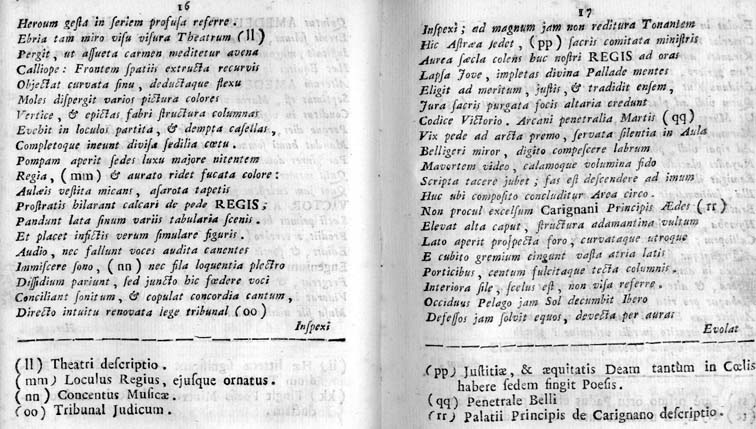 16
Heroum gesta in seriem profusa referre.
Ebria tam miro visu visura Theatrum (ll)
Pergit, ut assueta carmen meditetur avena
Calliope: Frontem spatiis extructa recurvis
Objectat curvata sinu, deductaque flexu
Moles dispergit varios pictura colores
Vertice, & epictas fabri structura columnas
Evehit in loculos partita, & dempta casellas,
Completoque ineunt divisa sedilia cœtu.
Pompam aperit sedes luxu majore nitentem
Regia, (mm) & aurato ridet fucata colore:
Aulæis vestita micans, asarota tapetis
Prostratis hilarant calcari de pede REGIS;
Pandunt lata sinum variis tabularia scenis.
Et placet infictis verum simulare figuris.
Audio, nec fallunt voces audita canentes
Immiscere sono, (nn) nec fila loquentia plectro
Dissidium pariunt, sed juncto hic fœdere voci
Conciliant sonitum, & copulat concordia cantum,
Directo intuitu renovata lege tribunal (oo)
Inspexi
(ll) Theatri descriptio.
(mm) Loculus Regius, ejusque ornatus.
(nn) Concentus Musicæ.
(oo) Tribunal Judicum.
17
Inspexi; ad magnum jam non reditura Tonantem
Hic Astræa sedet, (pp) sacris comitata ministris
Aurea sæcla colens huc nostri REGIS ad oras
Lapsa Jove, impletas divina Pallade mentes
Eligit ad meritum, justis, & tradidit ensem,
Jura sacris purgata focis altaria credunt
Codice Victorio. Arcani penetralia Martis (qq)
Vix pede ad arcta premo, servata silentia in Aula
Belligeri miror, digito compescere labrum
Mavortem video, calamoque volumina fido
Scripta tacere jubet; fas est descendere ad imum
Huc ubi composito concluditur Area circo.
Non procul excelsum Carignani Principis Ædes (rr)
Elevat alta caput, structura adamantina vultum
Lato aperit prospecta foro, curvataque utroque
E cubito gremium cingunt vasta atria latis
Porticibus, centum fulcitaque tecta columnis.
Interiora sile, scelus est, non visa referre.
Occiduus Pelago jam Sol decumbit Ibero
Defessos jam solvit equos, devecta per auras
Evolat
(pp) Justitiæ, & æquitatis Deam tantùm in Cœlis
habere sedem fingit Poesis.
(qq) Penetrale Belli
(rr) Palatii Principis de Carignano descriptio.